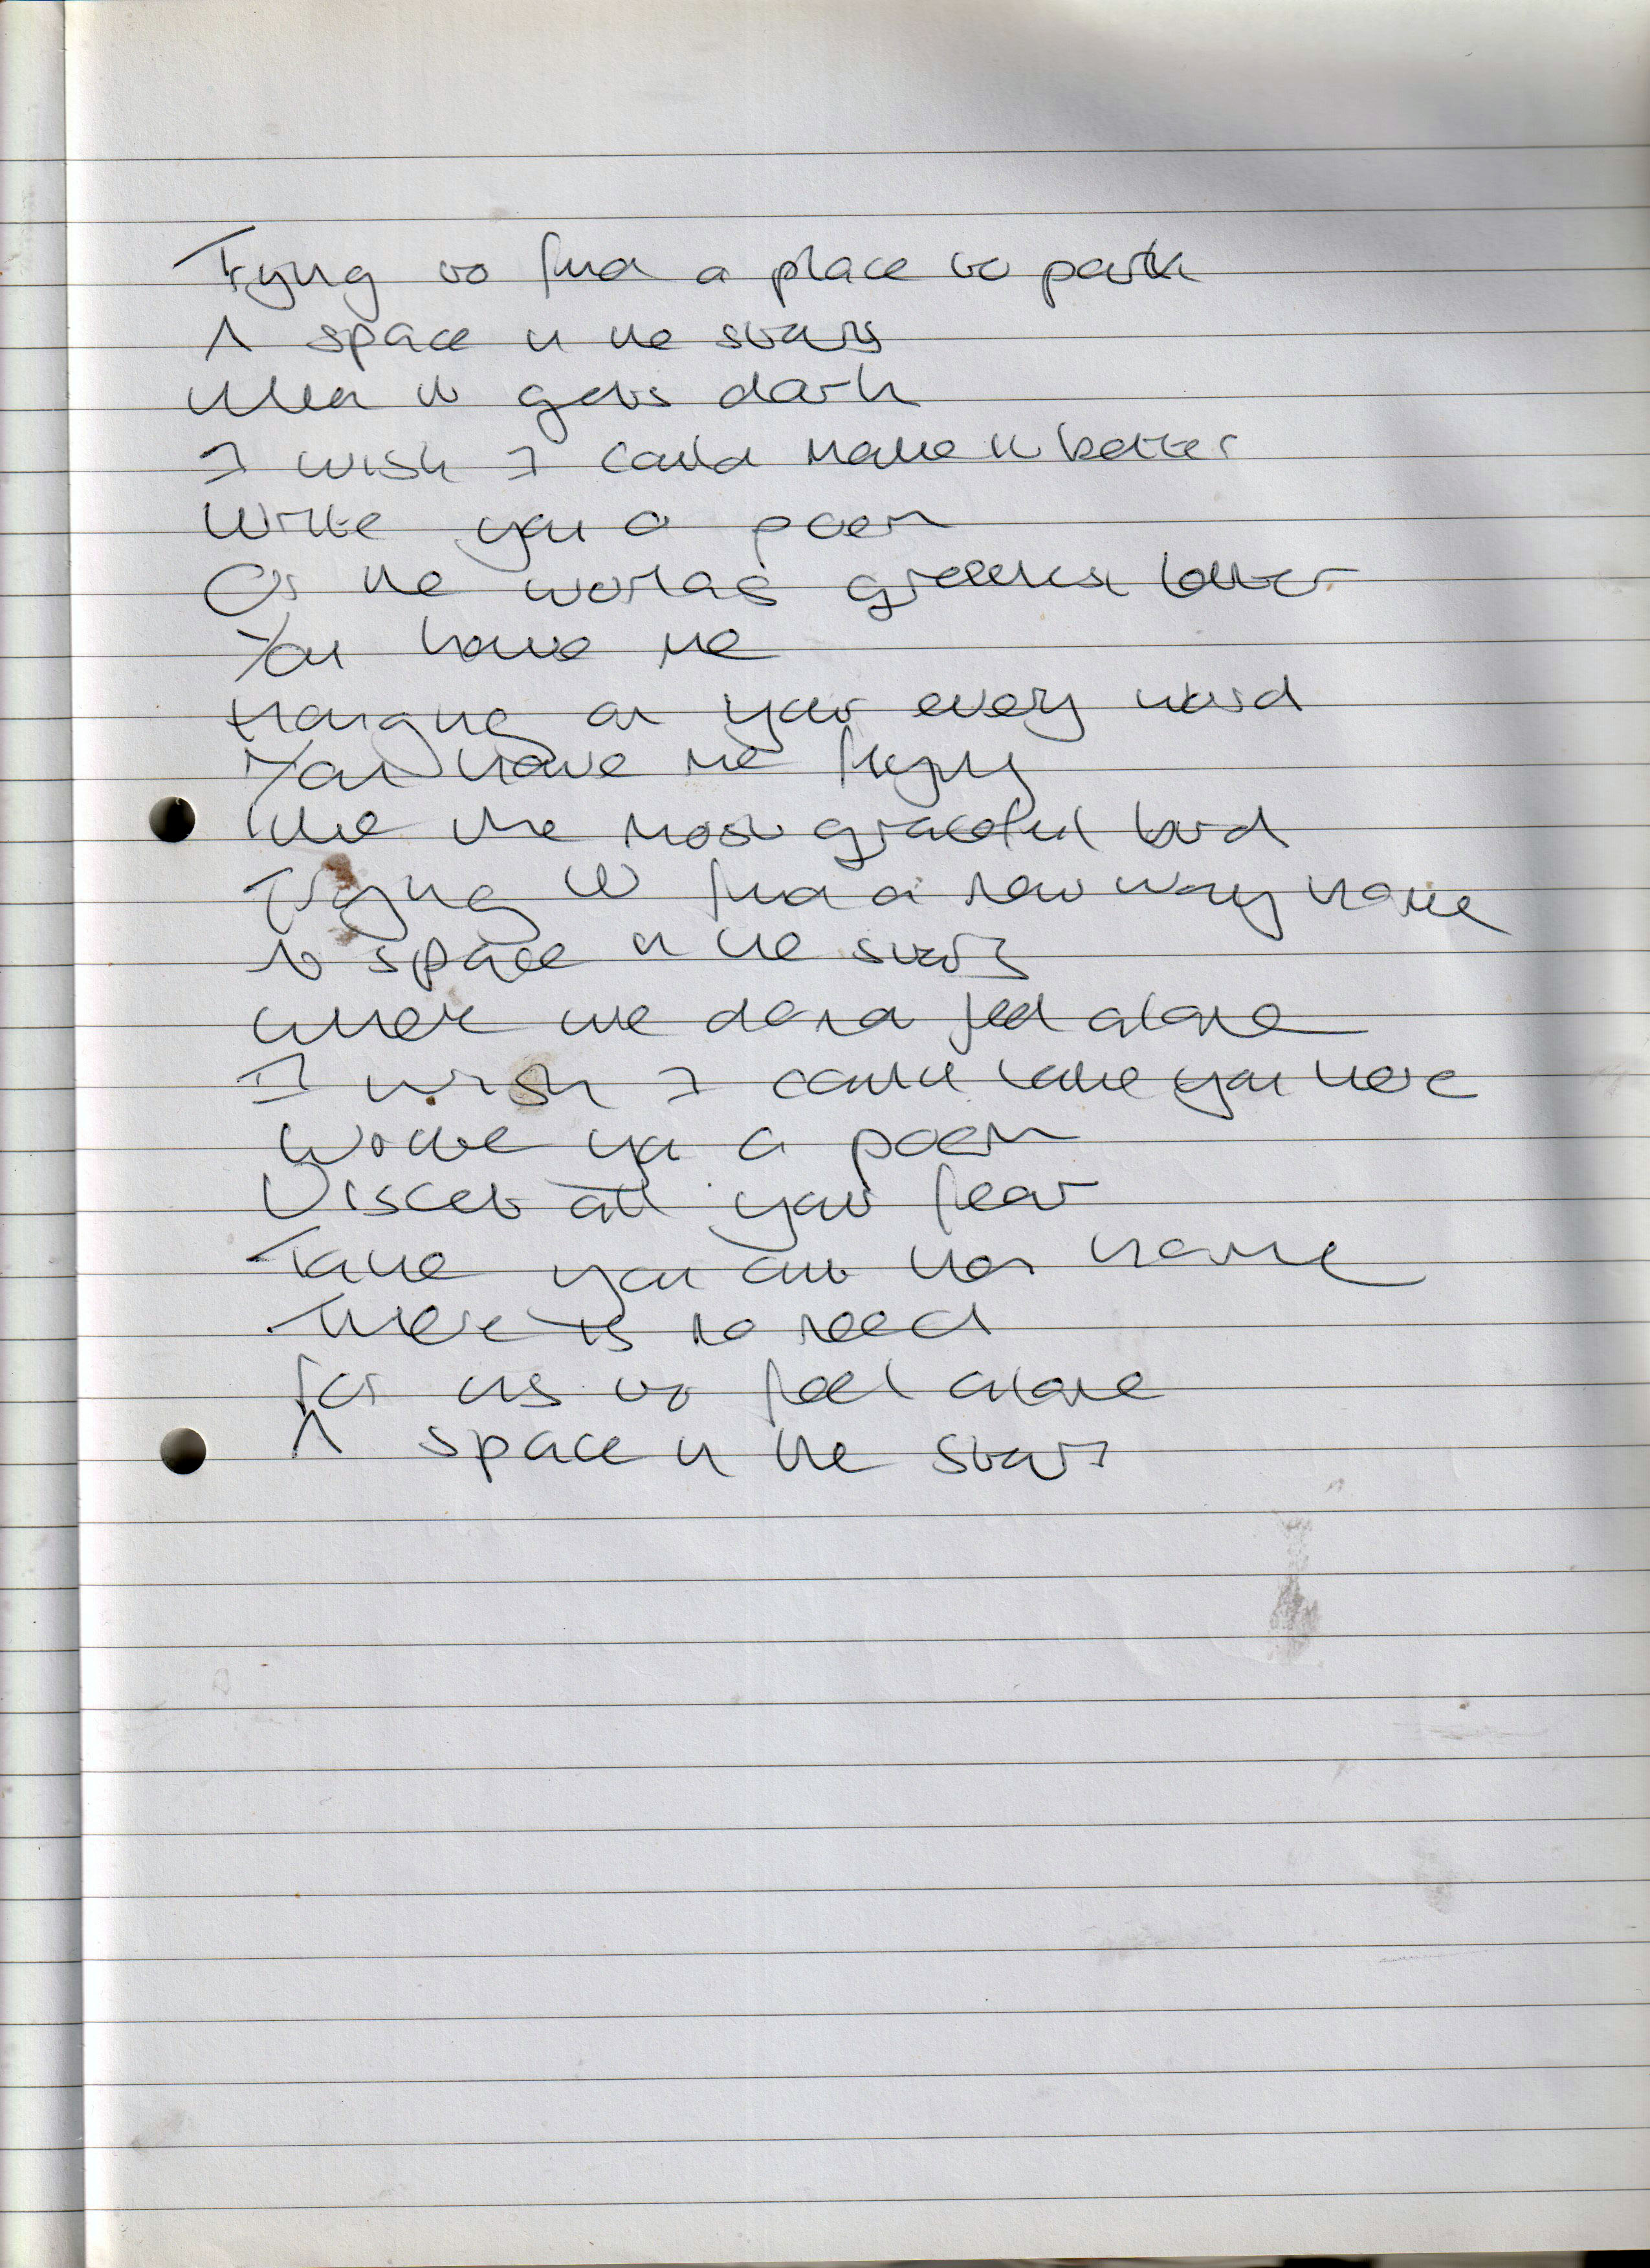 Trying to find a place to park
A space in the stars
When it gets dark
I wish I could make it better
Write you a poem
Or the worlds greatest letter
You have me
Hanging on your every word
You have me flying
like the most graceful bird
Trying to find a new way home
A space in the stars
Where we dont feel alone
I wish I could take you here
Write you a poem
Dissect all your fear
Take you our home
There is no need
for us to feel alone
A space in the stars